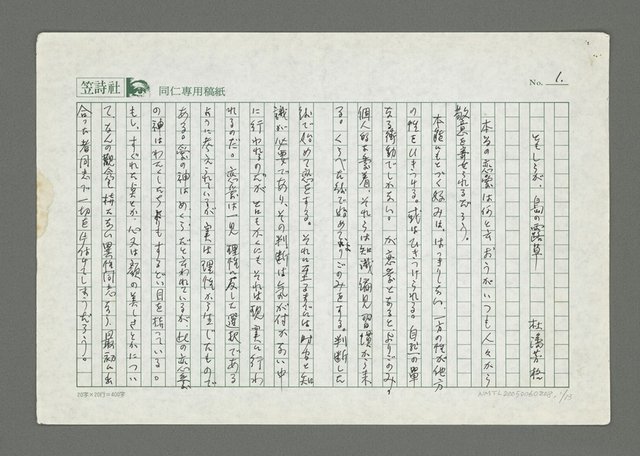 笠詩社
同仁専用稿紙
No. 1.
杜潘芳格
本当の恋愛は何ときおうがいつも人々から
敬意を寄せられるだろう。
本能にもとづく好みは、はっきりしない一方の性が他方
の性をひきつける。或はひきつけられる。自然の単
なる衝動でしかない。が恋愛となると、よりごのみ、
個人的な愛着、それらは知識、偏見、習慣から来
る。判断した
始めて恋をする。それに至るまでには時台と知
識が必要であり、その判断は気が付かない中
に行われるのだが、とにもかくにもそれは現実に行わ
れるのだ。恋愛は一見理性に反した選択である
ように考えられているが、実は理性から生じたもので
ある。愛の神はめくらだと言われているが、此の恋愛
の神はわたくしたちよりもするどい目を持っている。
もし、すぐれた点とか、心又は顔の美しさとかについ
て、なんの観念も持たない異性同志なら、最初に出
合った者同志で一切を片付てしまうだろう。
20字×20行=400字
NMTL20050060203
1/13